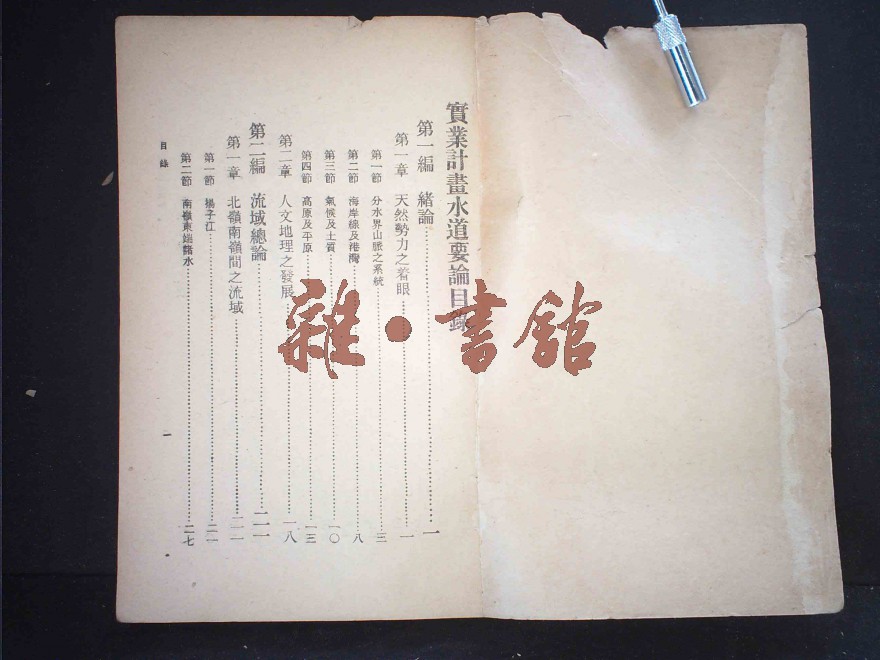 實業計畫水道要論目錄
第一編 緒論 一
第一章 天然勢力之着眼 一
第一節 分水界山脈之系統 三
第二節 海岸線及港灣 八
第三節 氣候及土質 一〇
第四節 高原及平原 一三
第二章 人文地理之發展 一八
第二編 流域總論 二一
第一章 北嶺南嶺間之流域 二一
第一節 揚子江 二一
第二節 南嶺東端諸水 二七
目錄
一
雜·書舘